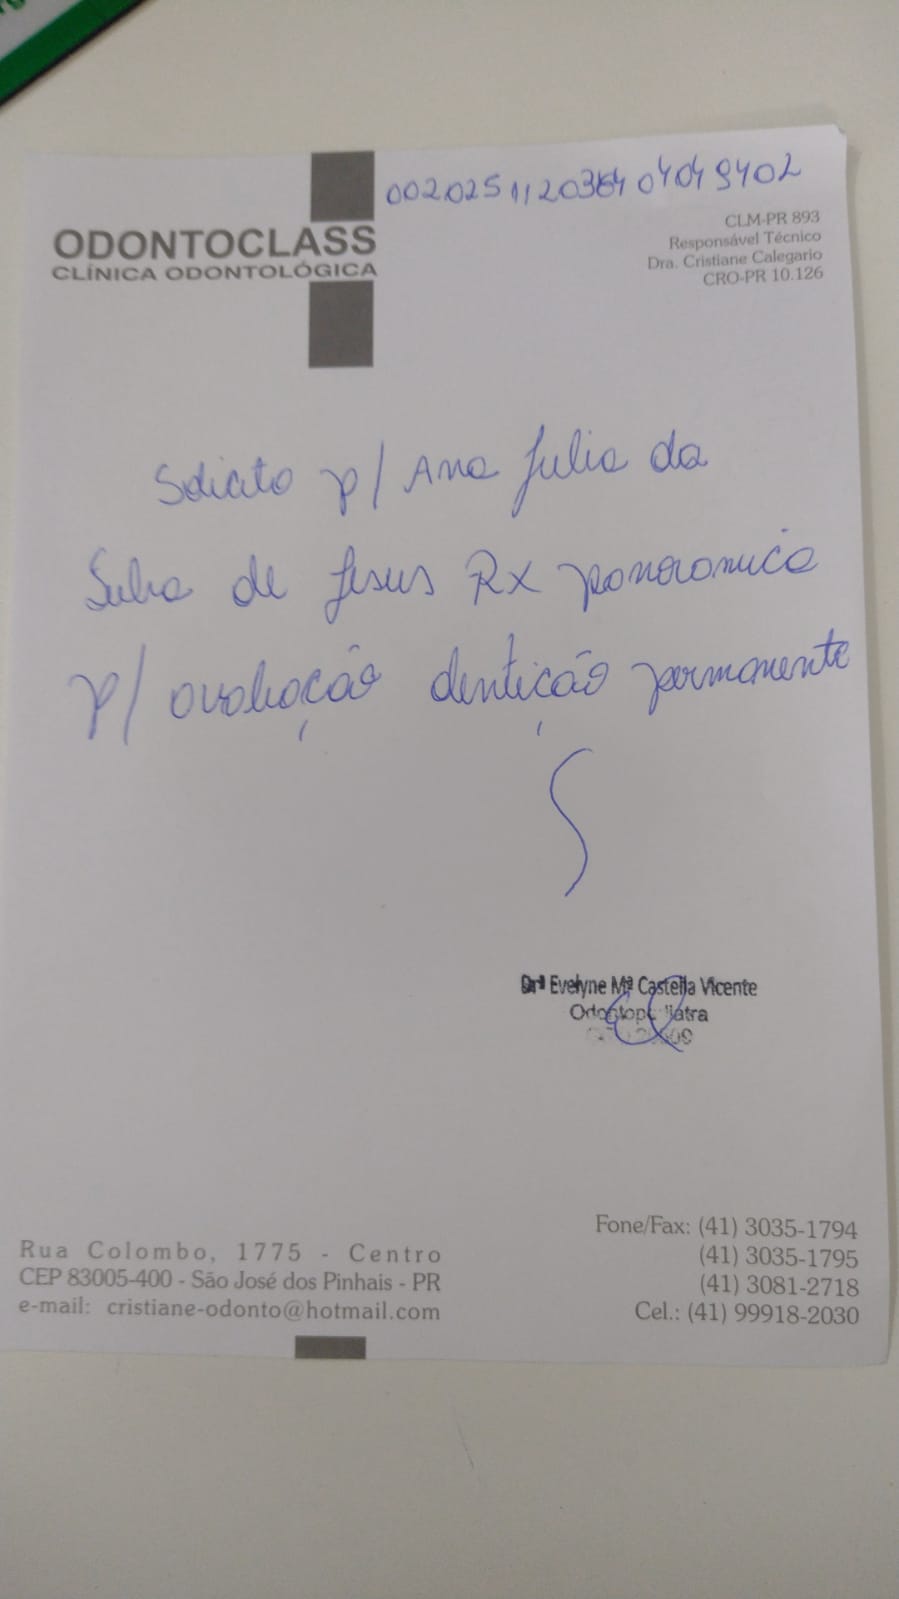 ODONTOCLASS
CLÍNICA ODONTOLÓGICA
CLM-PR 893
Responsável Técnico
Dra. Cristiane Calegario
CRO-PR 10.126
Solicito p/ Ana Julia da
Silva de Jesus Rx panoramica
p/ avaliação dentição permanente
Drª Evelyne Mª Castella Vicente
Rua Colombo, 1775 - Centro
CEP 83005-400 - São José dos Pinhais - PR
e-mail: cristiane-odonto@hotmail.com
Fone/Fax: (41) 3035-1794
(41) 3035-1795
(41) 3081-2718
Cel.: (41) 99918-2030